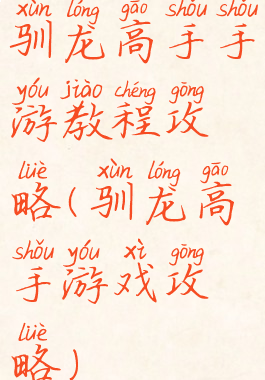 xùn lóng gāo shǒu shǒu
驯龙高手手
yóu jiào chéng gōng
游教程攻
lüè xùn lóng gāo
略(驯龙高
shǒu yóu xì gōng
手游戏攻
lüè
略)